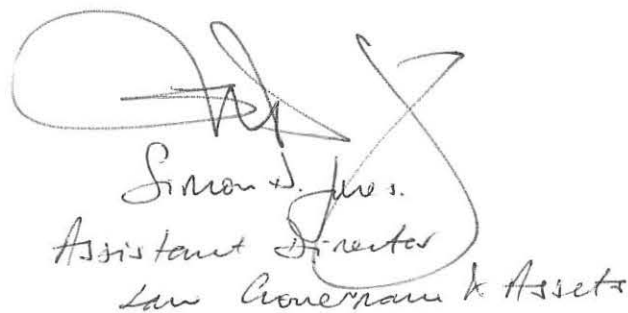 Simon D. Jones.
Assistant Director
Law Governance & Assets